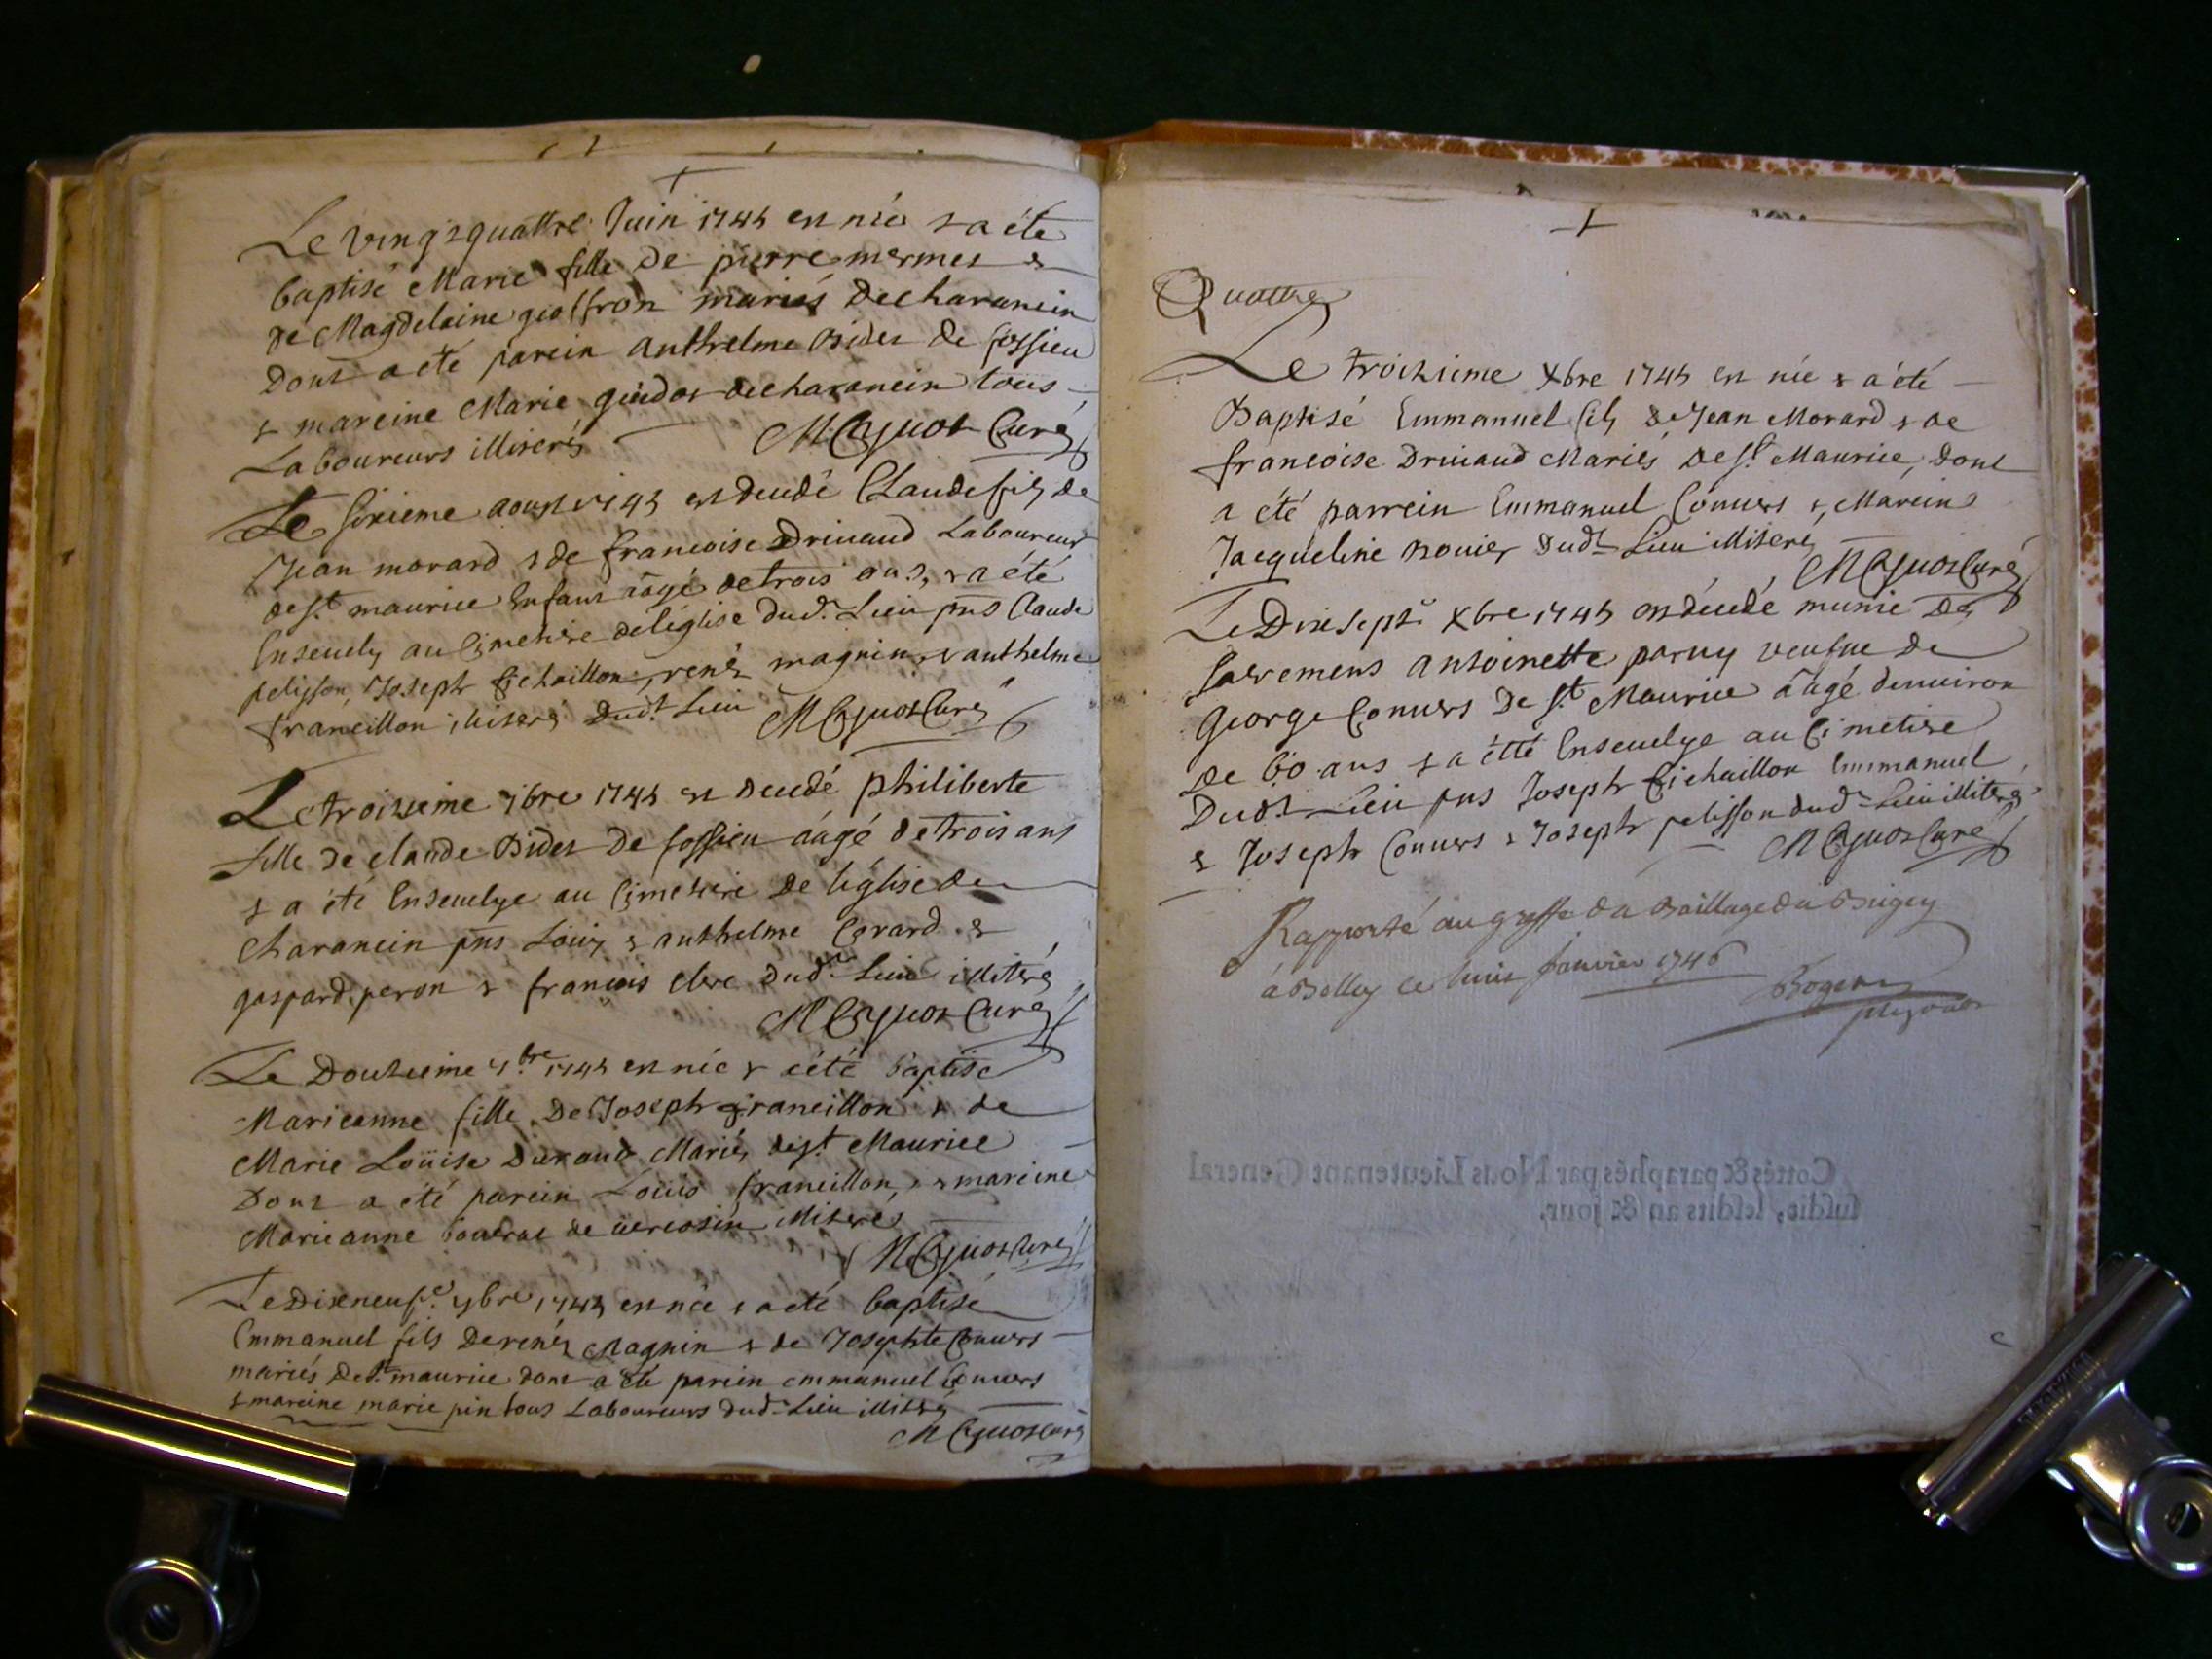 Le vingtquattre Juin 1745 est née & a été
baptisé Marie fille de pierre mermet &
de Magdelaine geoffron mariés decharancin
Dont a été parein anthelme Bidet de fossieu
& mareine Marie guidot decharancin tous
Laboureurs illiterés M Cajuot Curé
Le sixieme aoust 1745 est decedé Claude fils de
Jean morard & de francoise Drivaud Laboureur
de st maurice Enfant aagé de trois ans, & a été
Ensevely au Cimetiere deléglise dud. Lieu pnts Claude
pelisson, Joseph Cichaillon, renés magnin, & anthelme
francillon illiterés dudt Lieu M Cajuot Curé
Le troizieme 7bre 1745 est decedé philiberte
fille de claude Bidet De fossieu aagé de trois ans
& a été Ensevelye au Cimetiere de l'église de
Charancin pnts Louis & anthelme Corard &
gaspard peron & francois clerc dudt Lieu illiterés
M Cajuot Curé
Le Douzieme 9.bre 1745 est née & été baptisé
Marieanne fille De Joseph francillon & de
Marie Loüise Durand Mariés dest Maurice
Dont a été parein Loüis francillon, & mareine
Marieanne de illiterés
M Cajuot Curé
Le Dixneufe. 9bre 1745 est née & a eté baptisé
Emmanuel fils De renés Magnin & de Josephte Convers
mariés de st maurice dont a été parein emmanuel Convers
& mareine marie pin tous Laboureurs dudt Lieu illiterés
M Cajuot Curé
Quattre
Le troizieme Xbre 1745 est née & a été
Baptisé Emmanuel fils de Jean Morard & de
francoise Drivaud Mariés de st. Maurice, dont
a été parrein Emmanuel Convers &, Marein
Jacqueline Bovier dudt Lieu illiteré
M Cajuot Curé
Le Dixsepte Xbre 1745 est décedé munie des
sacremens antoinette parny veufve de
George Convers De st. Maurice aagé denviron
de 60 ans & a étté Ensevelye au Cimetiere
Dudt Lieu pnts Joseph Cichaillon Emmanuel
& Joseph Convers & Joseph pelisson dudt Lieu illiterés
M Cajuot Curé
Rapporté au greffe du Baillage du Bugey
à Belley ce huit Janvier 1746
Cottés & paraphés par Nous Lieutenant General
susdit, lesdits an & jour.